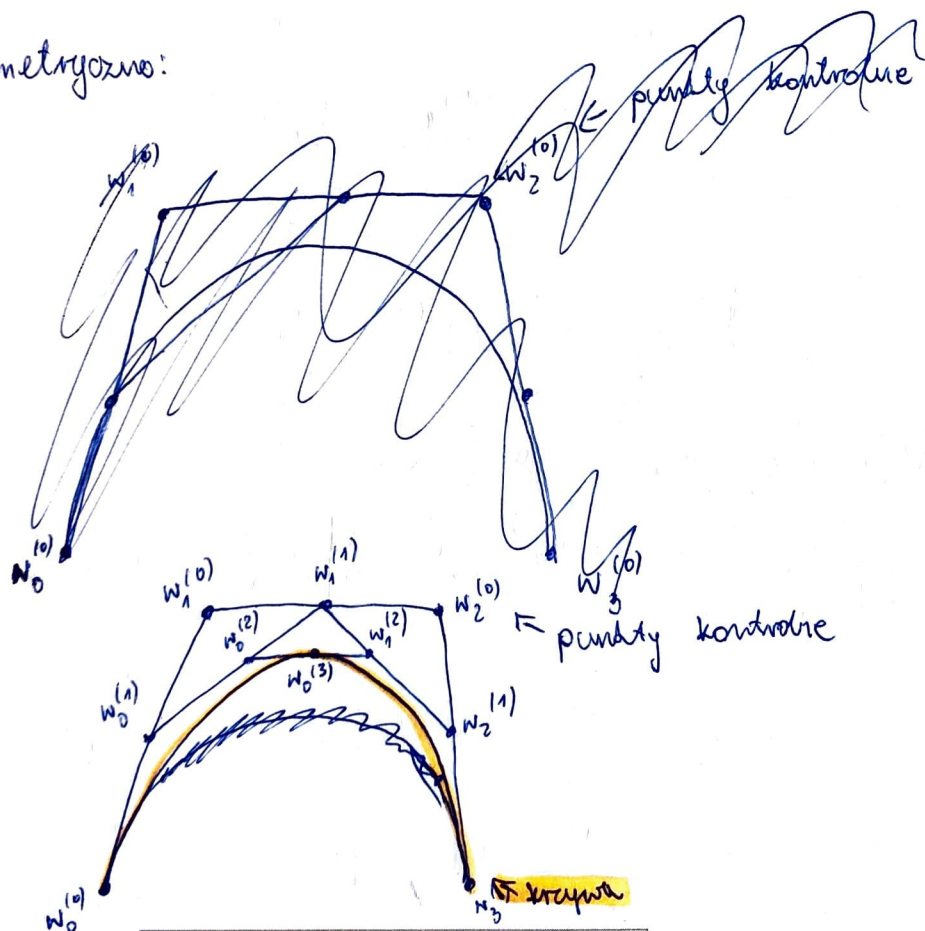 metryczno:
← punkty kontrolne
W₁⁽⁰⁾
W₂⁽⁰⁾
W₀⁽⁰⁾
W₃⁽⁰⁾
W₁⁽⁰⁾ W₁⁽¹⁾ W₂⁽⁰⁾ ← punkty kontrolne
W₀⁽²⁾ W₁⁽²⁾
W₀⁽³⁾
W₀⁽¹⁾ W₂⁽¹⁾
W₀⁽⁰⁾ W₃⁽⁰⁾ ← krzywa